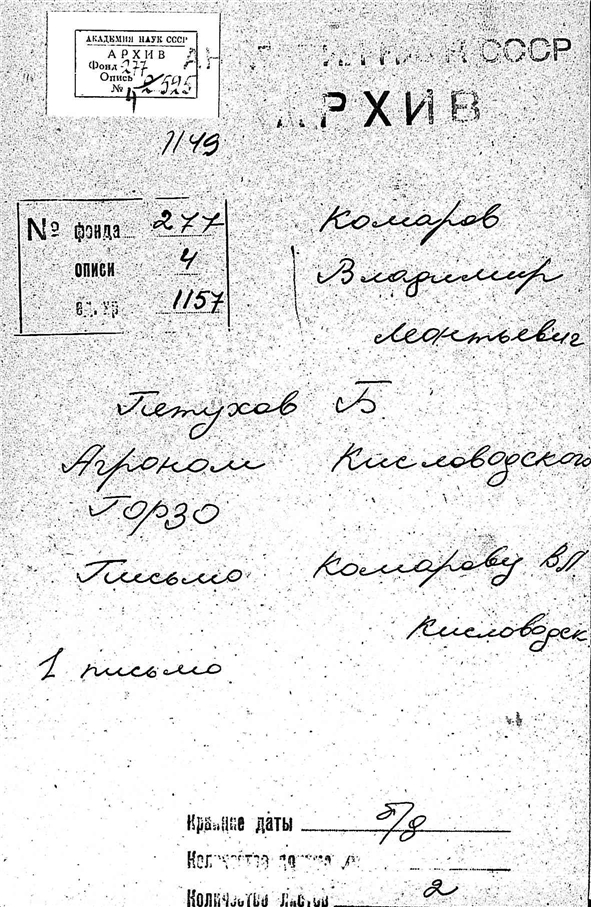 АКАДЕМИЯ НАУК СССР
АРХИВ
Фонд 277
Опись
№ 4
НАУК СССР
АРХИВ
1149
№ фонда 277
описи 4
ед. хр 1157
Комаров
Владимир
Леонтьевич
Петухов Б
Агроном Кисловодского
ГОРЗО
Письмо Комарову ВЛ
Кисловодск
1 письмо
Крайние даты б/д
Количество
Количество листов 2